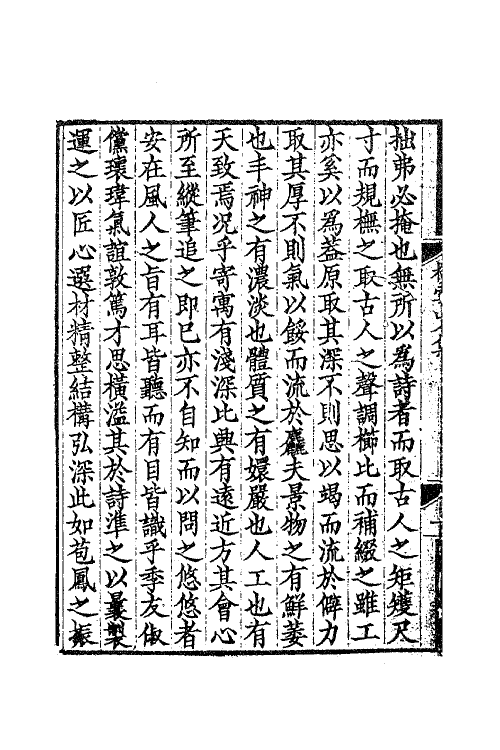 拙弗必掩也無所以爲詩者而取古人之矩矱尺
寸而規橅之取古人之聲調櫛比而補綴之雖工
亦奚以爲蓋原取其深不則思以竭而流於僻力
取其厚不則氣以餒而流於麤夫景物之有鮮萎
也丰神之有濃淡也體質之有嬛嚴也人工也有
天致焉况乎寄寓有淺深比興有遠近方其會心
所至縱筆追之即已亦不自知而以問之悠悠者
安在風人之旨有耳皆聽而有目皆識乎季友俶
儻瓌瑋氣誼敦篤才思橫溢其於詩準之以曩製
運之以匠心選材精整結構弘深此如苞鳳之振